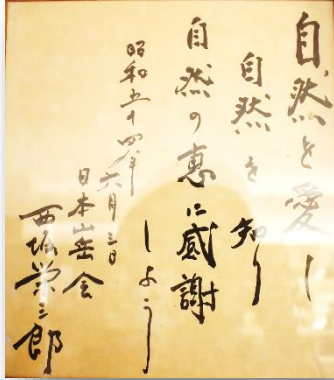 自然を愛し
自然を知り
自然の恵に感謝
しよう
昭和五十四年
六月三日
日本山岳会
西堀栄三郎